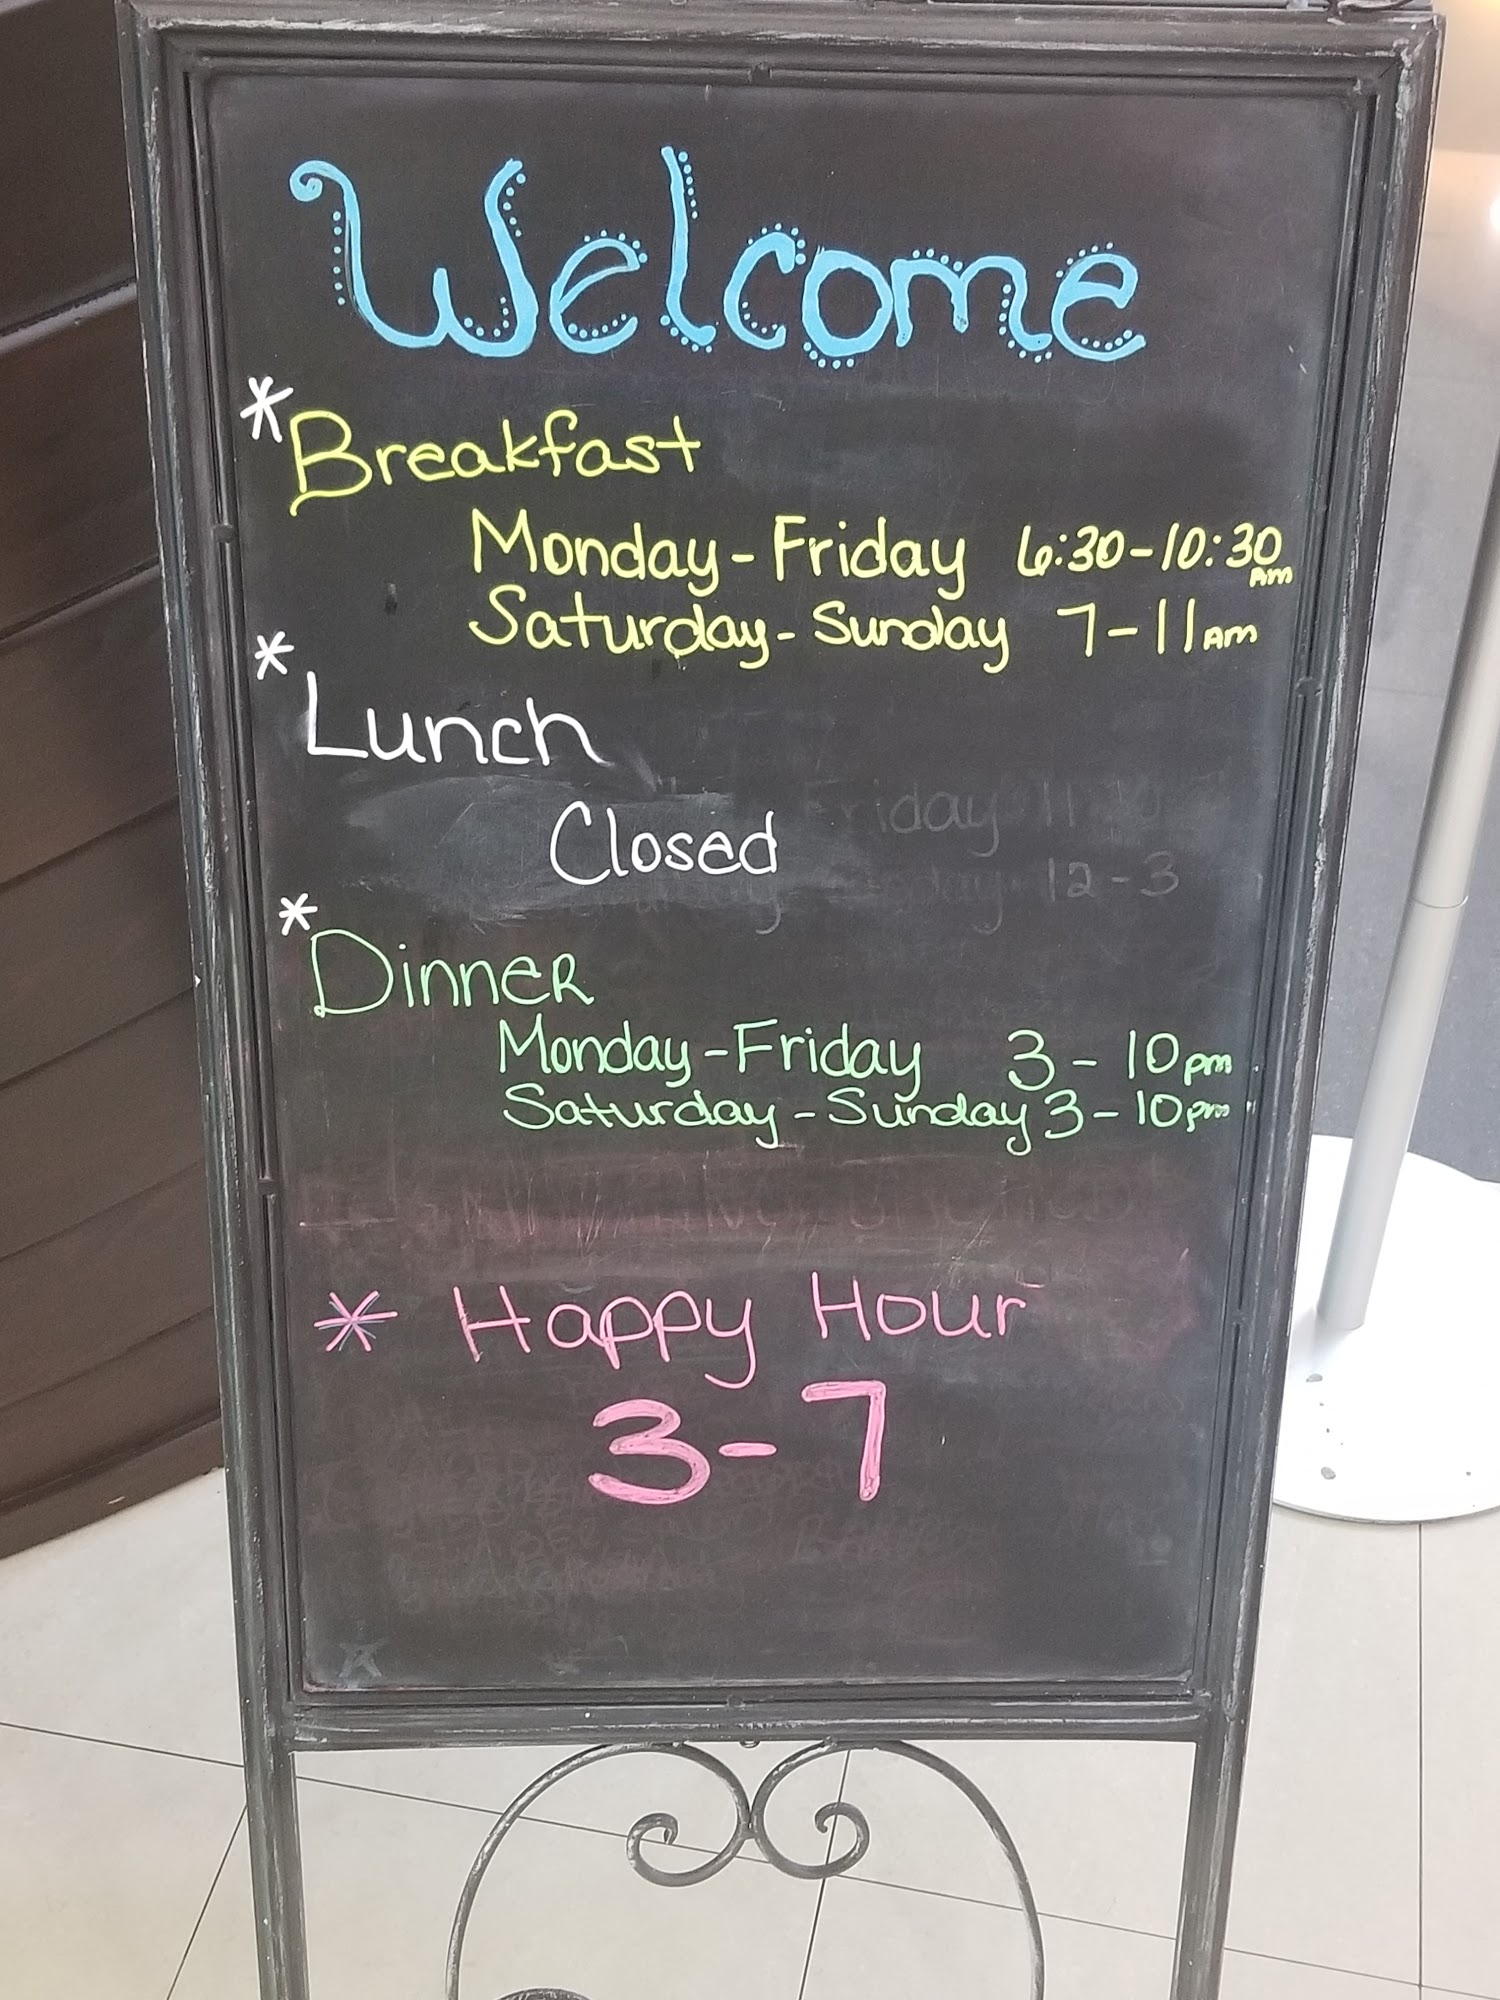 Welcome
* Breakfast
Monday - Friday 6:30 - 10:30 Am
Saturday - Sunday 7 - 11 Am
* Lunch
Friday 11
Closed
12 - 3
* DinneR
Monday - Friday 3 - 10 pm
Saturday - Sunday 3 - 10 pm
* Happy Hour
3 - 7